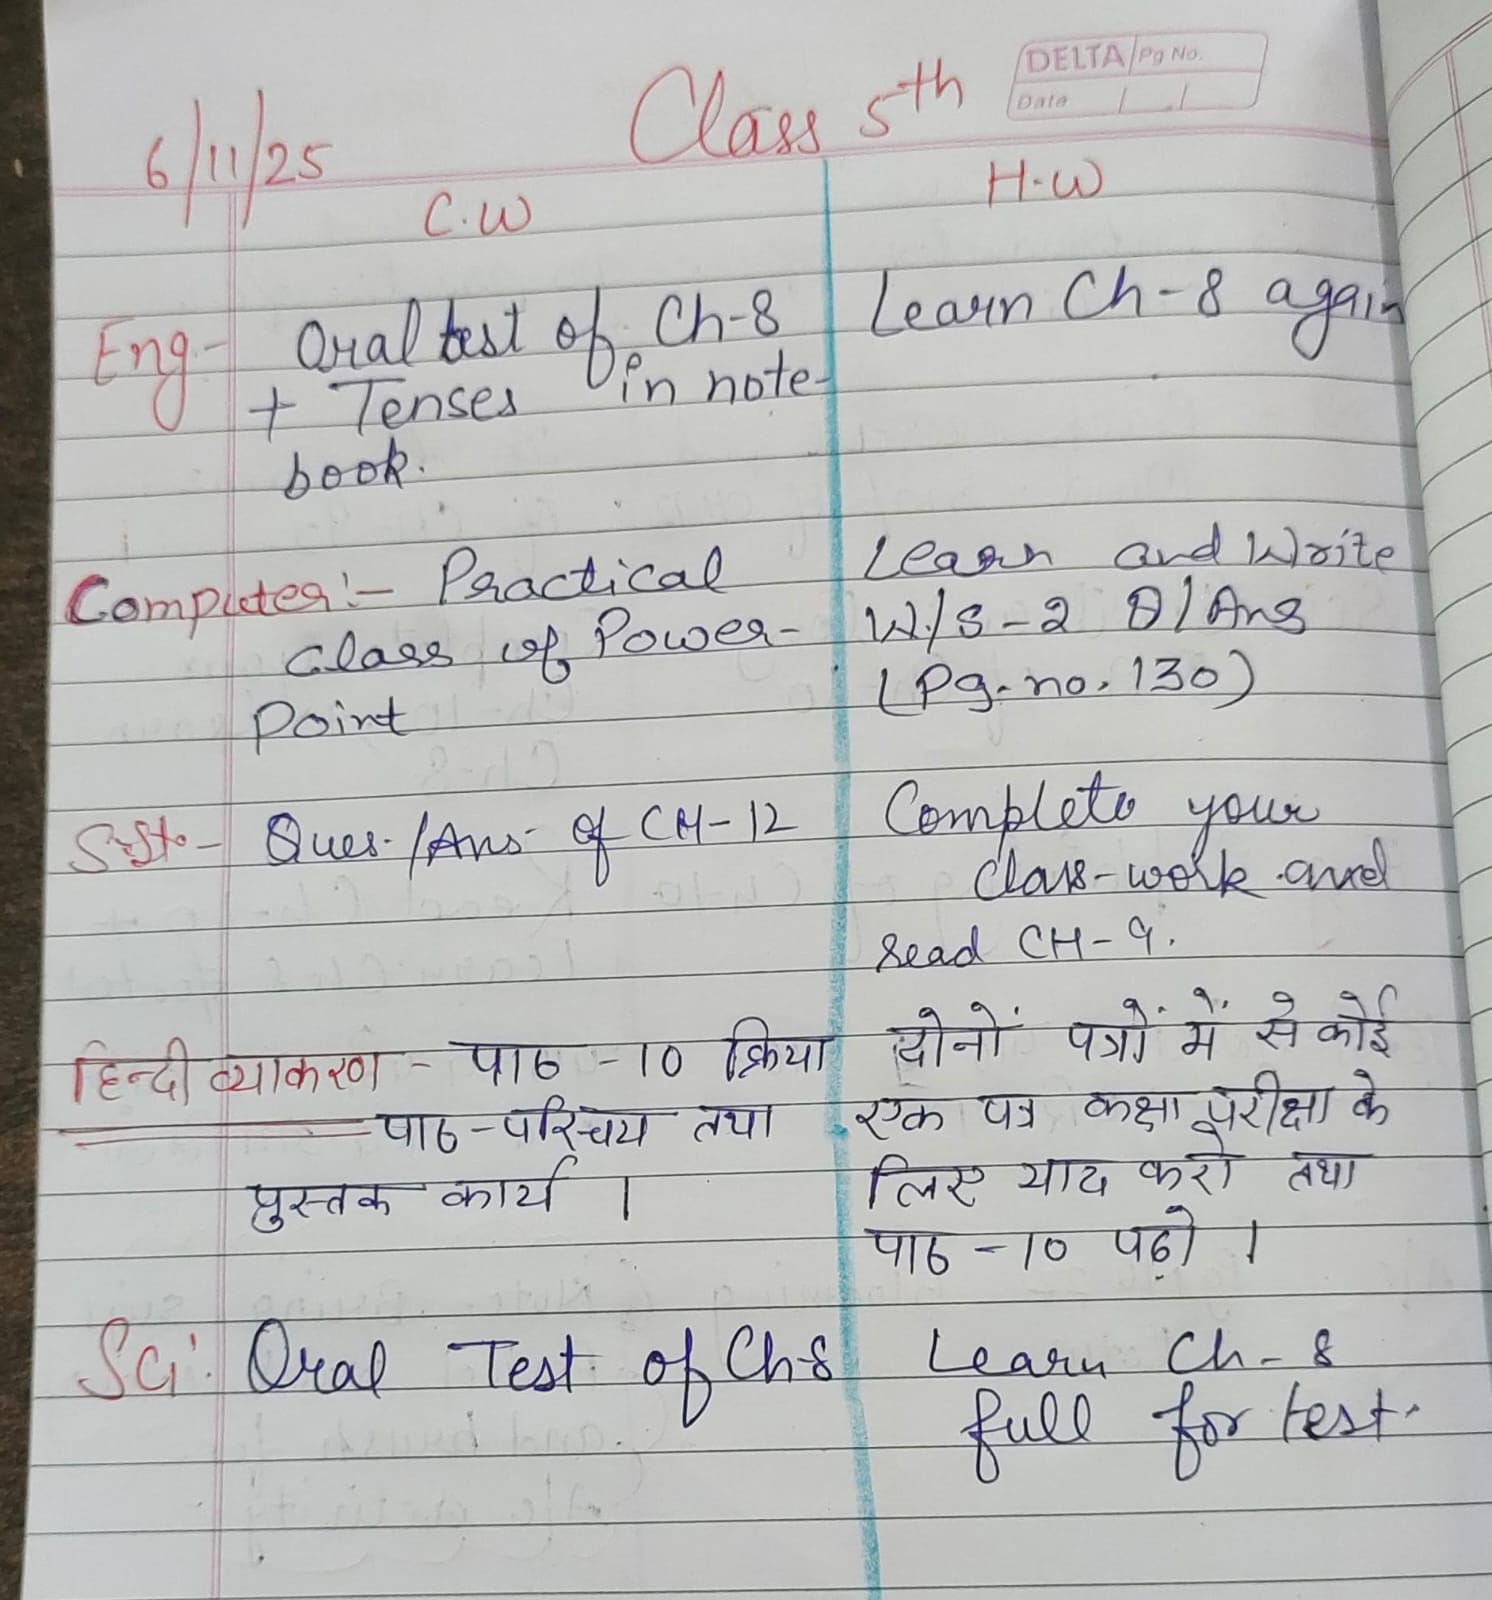 DELTA Pg No.
Date / /
Class 5th
6/11/25
C.W
H.W
Eng- Oral test of Ch-8
+ Tenses in note-
book.
Learn Ch-8 again
Computer:- Practical
class of Power-
Point
Learn and Write
W/S-2 Q/Ans
(Pg.no.130)
S.St.- Ques./Ans. of CH-12
Complete your
class-work and
read CH-9.
हिन्दी व्याकरण - पाठ -10 क्रिया
पाठ-परिचय तथा
पुस्तक कार्य ।
दोनों पत्रों में से कोई
एक पत्र कक्षा परीक्षा के
लिए याद करो तथा
पाठ -10 पढ़ो ।
Sci: Oral Test of Ch-8
Learn Ch-8
full for test.